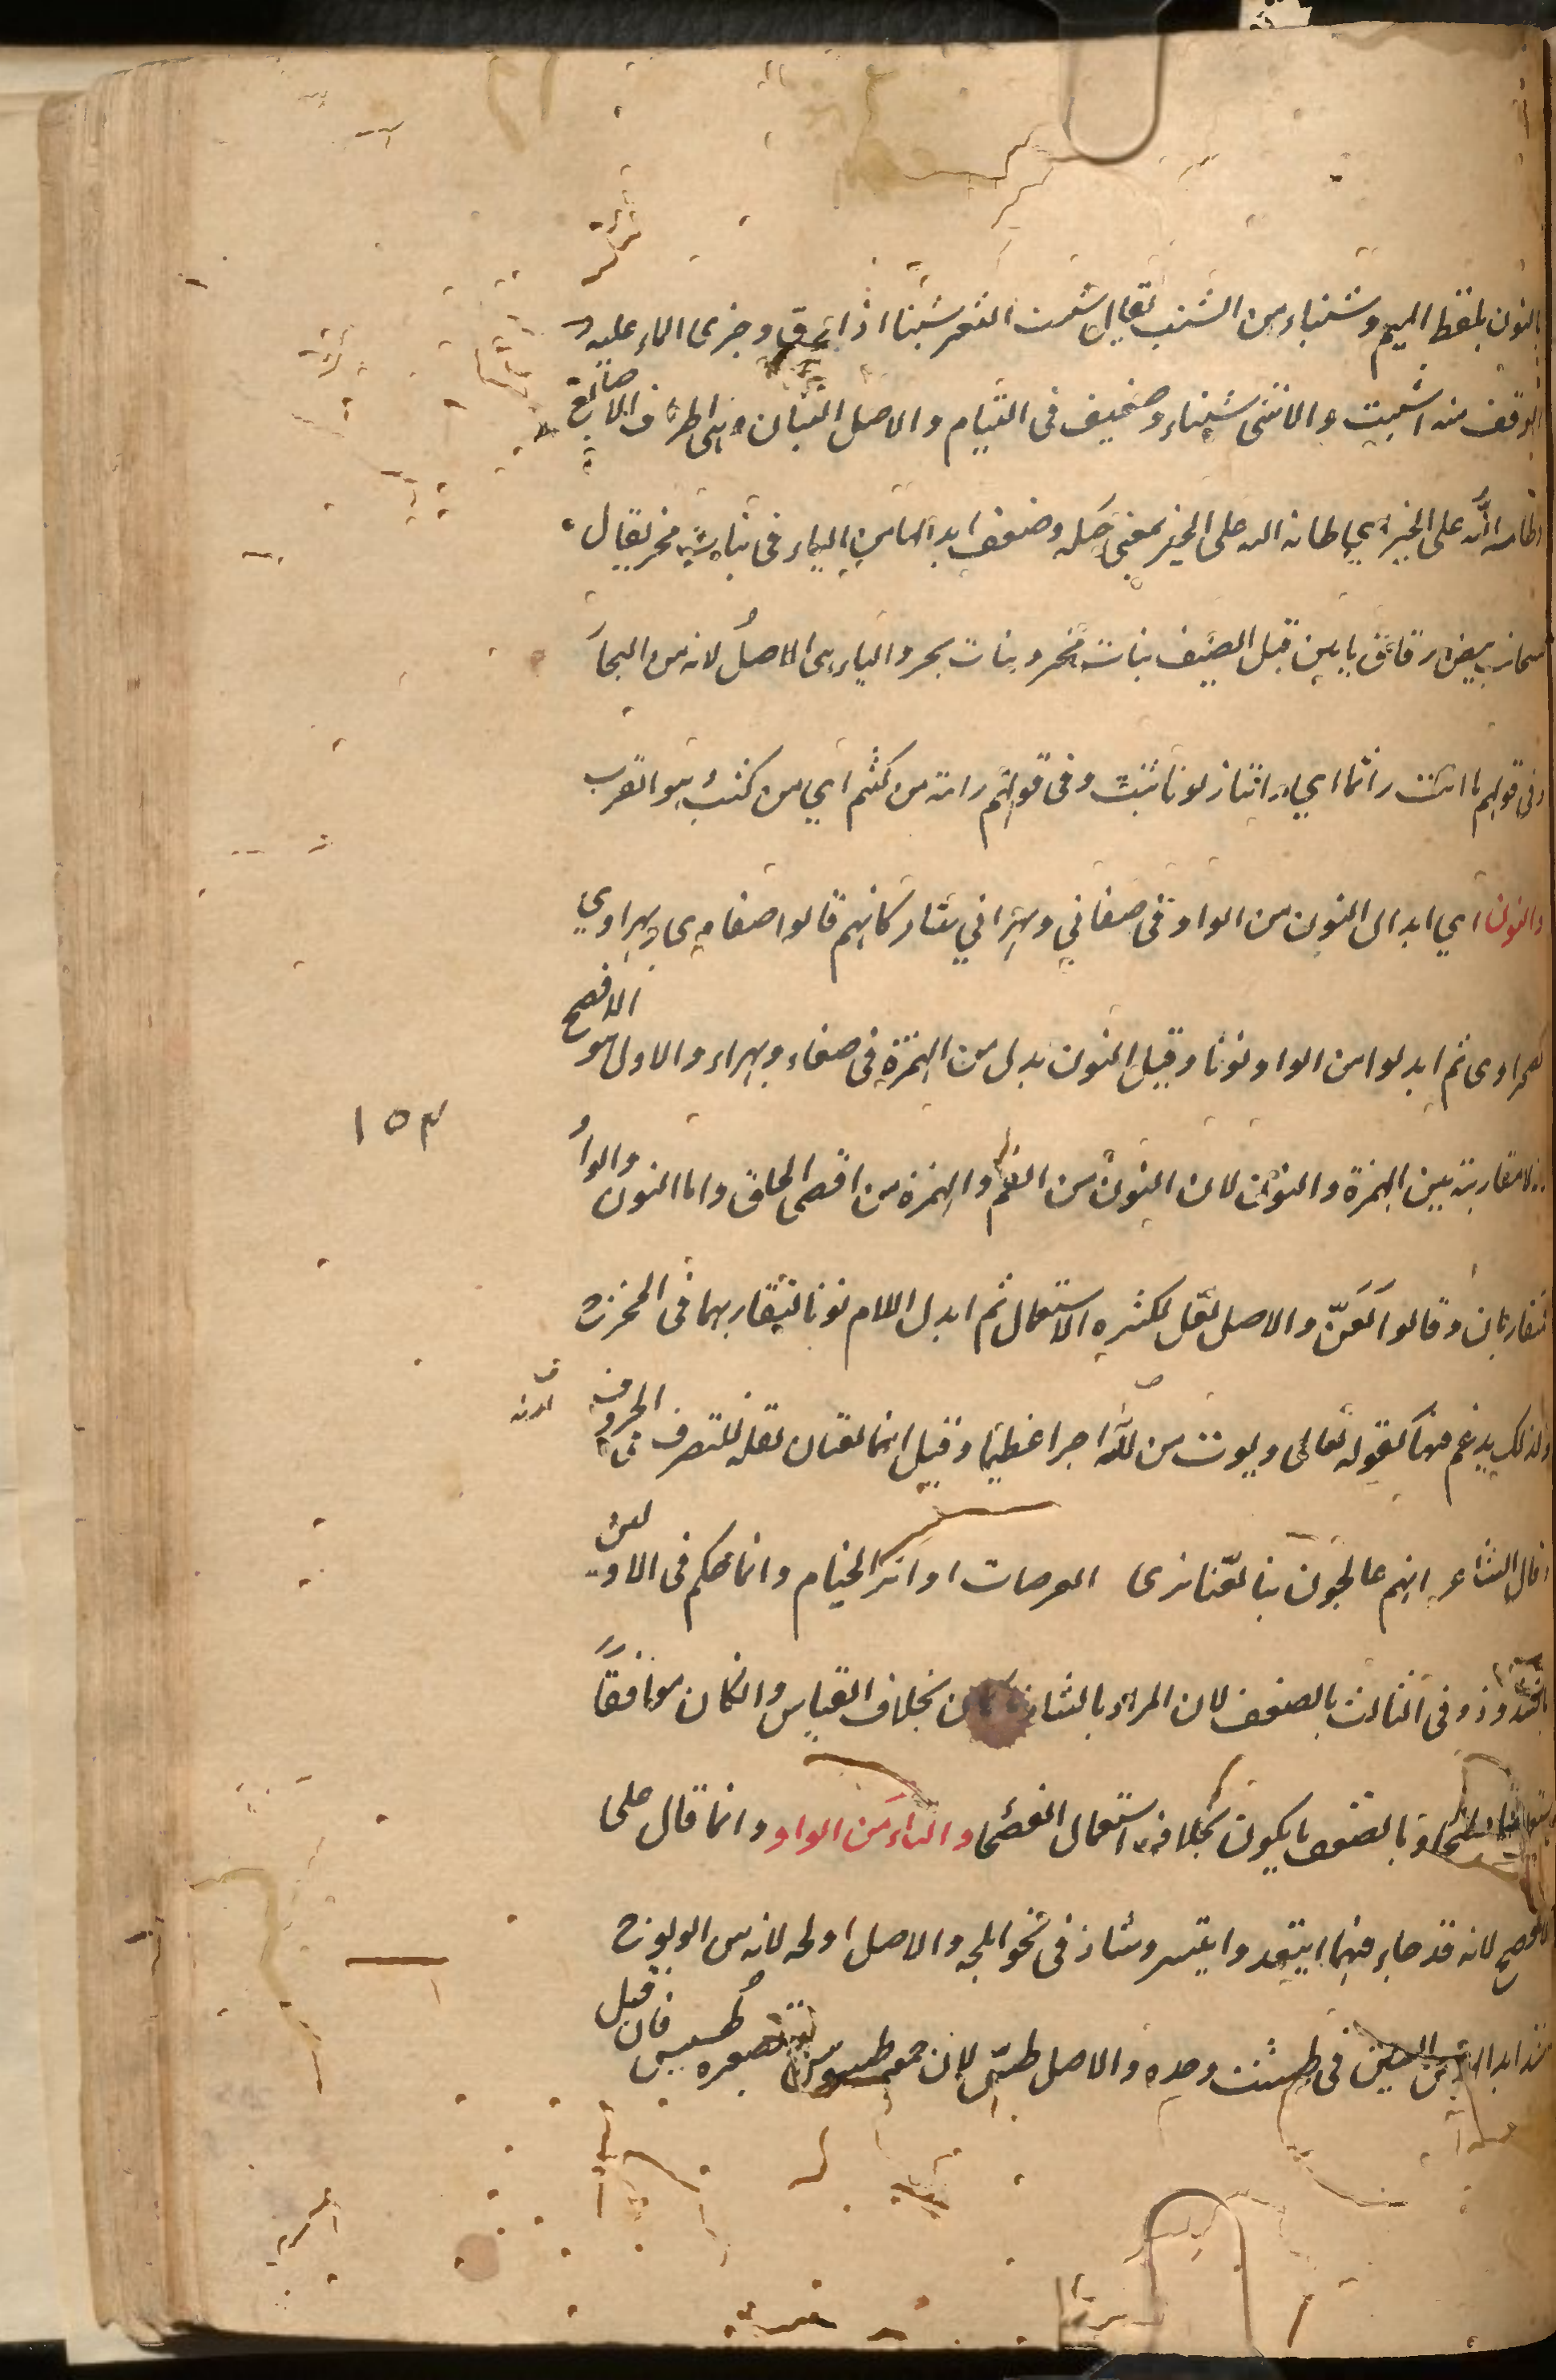 بالنون بلفظ الميم وشنباء من الشنب يقال شنبت الثغر شنبا اذا رق وجرى الماء عليه و
الوقف منه اشنبت والانثى شنباء وضعيف فى البنام والاصل البنان وهى اطراف الاصابع
وطامه الله على الخير اي طانه الله على الخير بمعنى جبله وضعف ابدالها من الباء فى بنات مخر يقال
سحائب بيض رقاق ياتين قبل الصيف بنات مخر وبنات بحر والباء هى الاصل لانه من البحار
وفى قولهم ما زلت راتما اي راتبا من رتب اذا ثبت وفى قولهم رايته من كثم اي من كثب وهو القرب
والنون اي ابدال النون من الواو فى صنعاني وبهراني شاذ كانهم قالوا صنعاوي وبهراوي
كصحراوى ثم ابدلوا من الواو نونا وقيل النون بدل من الهمزة فى صنعاء وبهراء والاول هو الاصح
اذ لا مقاربة بين الهمزة والنون لان النون من الفم والهمزة من اقصى الحلق واما النون والواو
متقاربان وقالوا لعنّ والاصل لعل لكثرة الاستعمال ثم ابدل اللام نونا لتقاربهما فى المخرج
ولذلك يدغم فيها كقوله تعالى ويوت من لدنه اجرا عظيما وقيل انها لغتان لقلة التصرف فى الحروف
وقال الشاعر انهم عالجون بنا لعنا نرى العرصات او اثر الخيام وانما حكم فى الاولين
بالشذوذ وفى الثالث بالضعف لان المراد بالشاذ ما كان بخلاف القياس وان كان موافقا
وبالضعف ما يكون بخلاف استعمال الفصحا والتاء من الواو وانما قال على
الافصح لانه قد جاء فيهما ايتعد وايتسر وشاذ فى نحو اتلجه والاصل اولجه لانه من الولوج
شذ ابدال التاء من السين فى طست وحده والاصل طسّ لان جمعه طسوس وتصغيره طسيس فان قيل
١٥٣